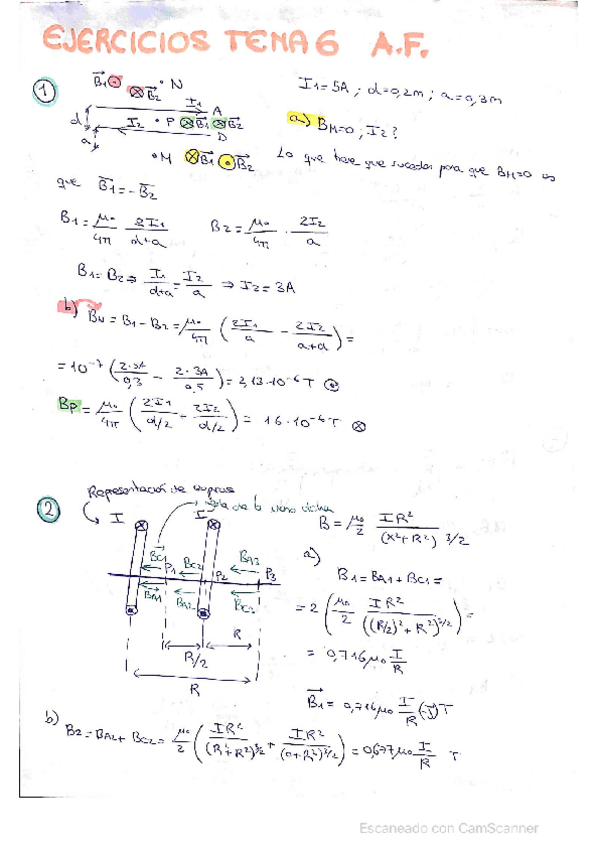 EJERCICIOS TEMA 6 A.F.
1
B⃗1 ⊙ ⊗ B⃗2 • N
I1 = 5A ; d = 0,2m ; a = 0,3m
I1 A
d I2 • P ⊗ B⃗1 ⊗ B⃗2
D
a
• M ⊗ B⃗1 ⊙ B⃗2
a) BM=0 ; I2?
Lo que tiene que suceder para que BM=0 es
que B⃗1 = -B⃗2
B1 = μ0/4π 2I1/(d+a) B2 = μ0/4π · 2I2/a
B1 = B2 ⇒ I1/(d+a) = I2/a ⇒ I2 = 3A
b) BN = B1 - B2 = μ0/4π (2I1/a - 2I2/(a+d)) =
= 10^-7 (2·5A/0,3 - 2·3A/0,5) = 2,13·10^-6 T ⊙
BP = μ0/4π (2I1/(d/2) - 2I2/(d/2)) = 16·10^-6 T ⊗
2
Representación de
I I
regla de la mano dcha
B = μ0/2 IR²/(x²+R²)^3/2
BC1 P1 BC2 P2 BA3 P3
BA1 BA2 BC3
R/2 R
R
a)
B1 = BA1 + BC1 =
= 2 (μ0/2 IR²/((R/2)²+R²)^3/2) =
= 0,716 μ0 I/R
B⃗1 = 0,716 μ0 I/R (-j⃗) T
b) B2 = BA2 + BC2 = μ0/2 (IR²/(R²+R²)^3/2 + IR²/(0+R²)^3/2) = 0,677 μ0 I/R T
Escaneado con CamScanner